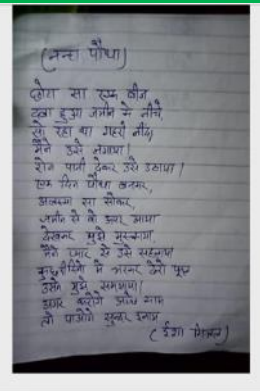 (नन्हा पौधा)
छोटा सा एक बीज
दबा हुआ जमीन के नीचे,
सो रहा था गहरी नींद,
मैंने उसे लगाया।
रोज पानी देकर उसे उठाया।
एक दिन पौधा बनकर,
सा होकर,
जमीन से वो ऊपर आया
देखकर मुझे मुस्काया
मैंने प्यार से उसे सहलाया
कुछ दिनों में भरकर ढेरों फूल
उसने मुझे समझाया।
अगर करोगे अच्छे काम
तो पाओगे सुन्दर इनाम
(ईशा मित्तल)